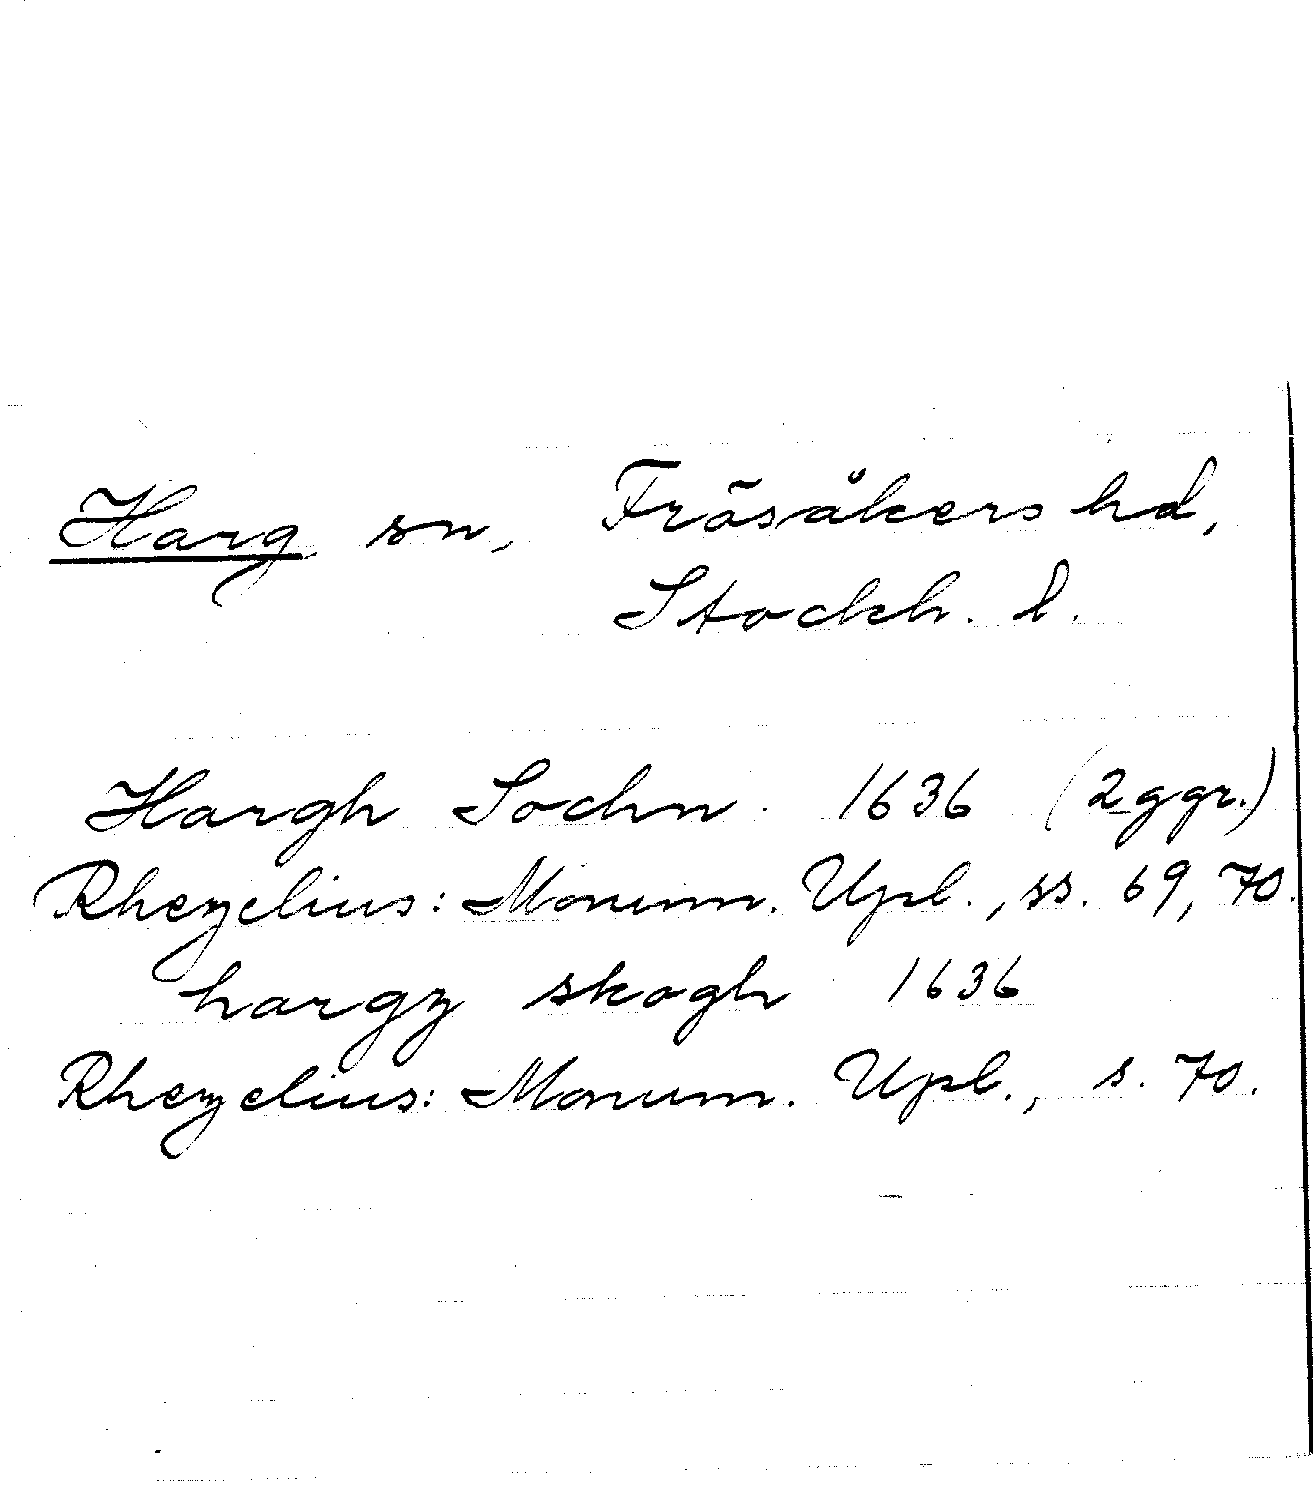 Harg sn, Frösåkers hd,
Stockh. l.
Hargh Sochn. 1636 (2 ggr.)
Rhezelius: Monum. Upl., ss. 69, 70.
hargz skogh 1636
Rhezelius: Monum. Upl., s. 70.